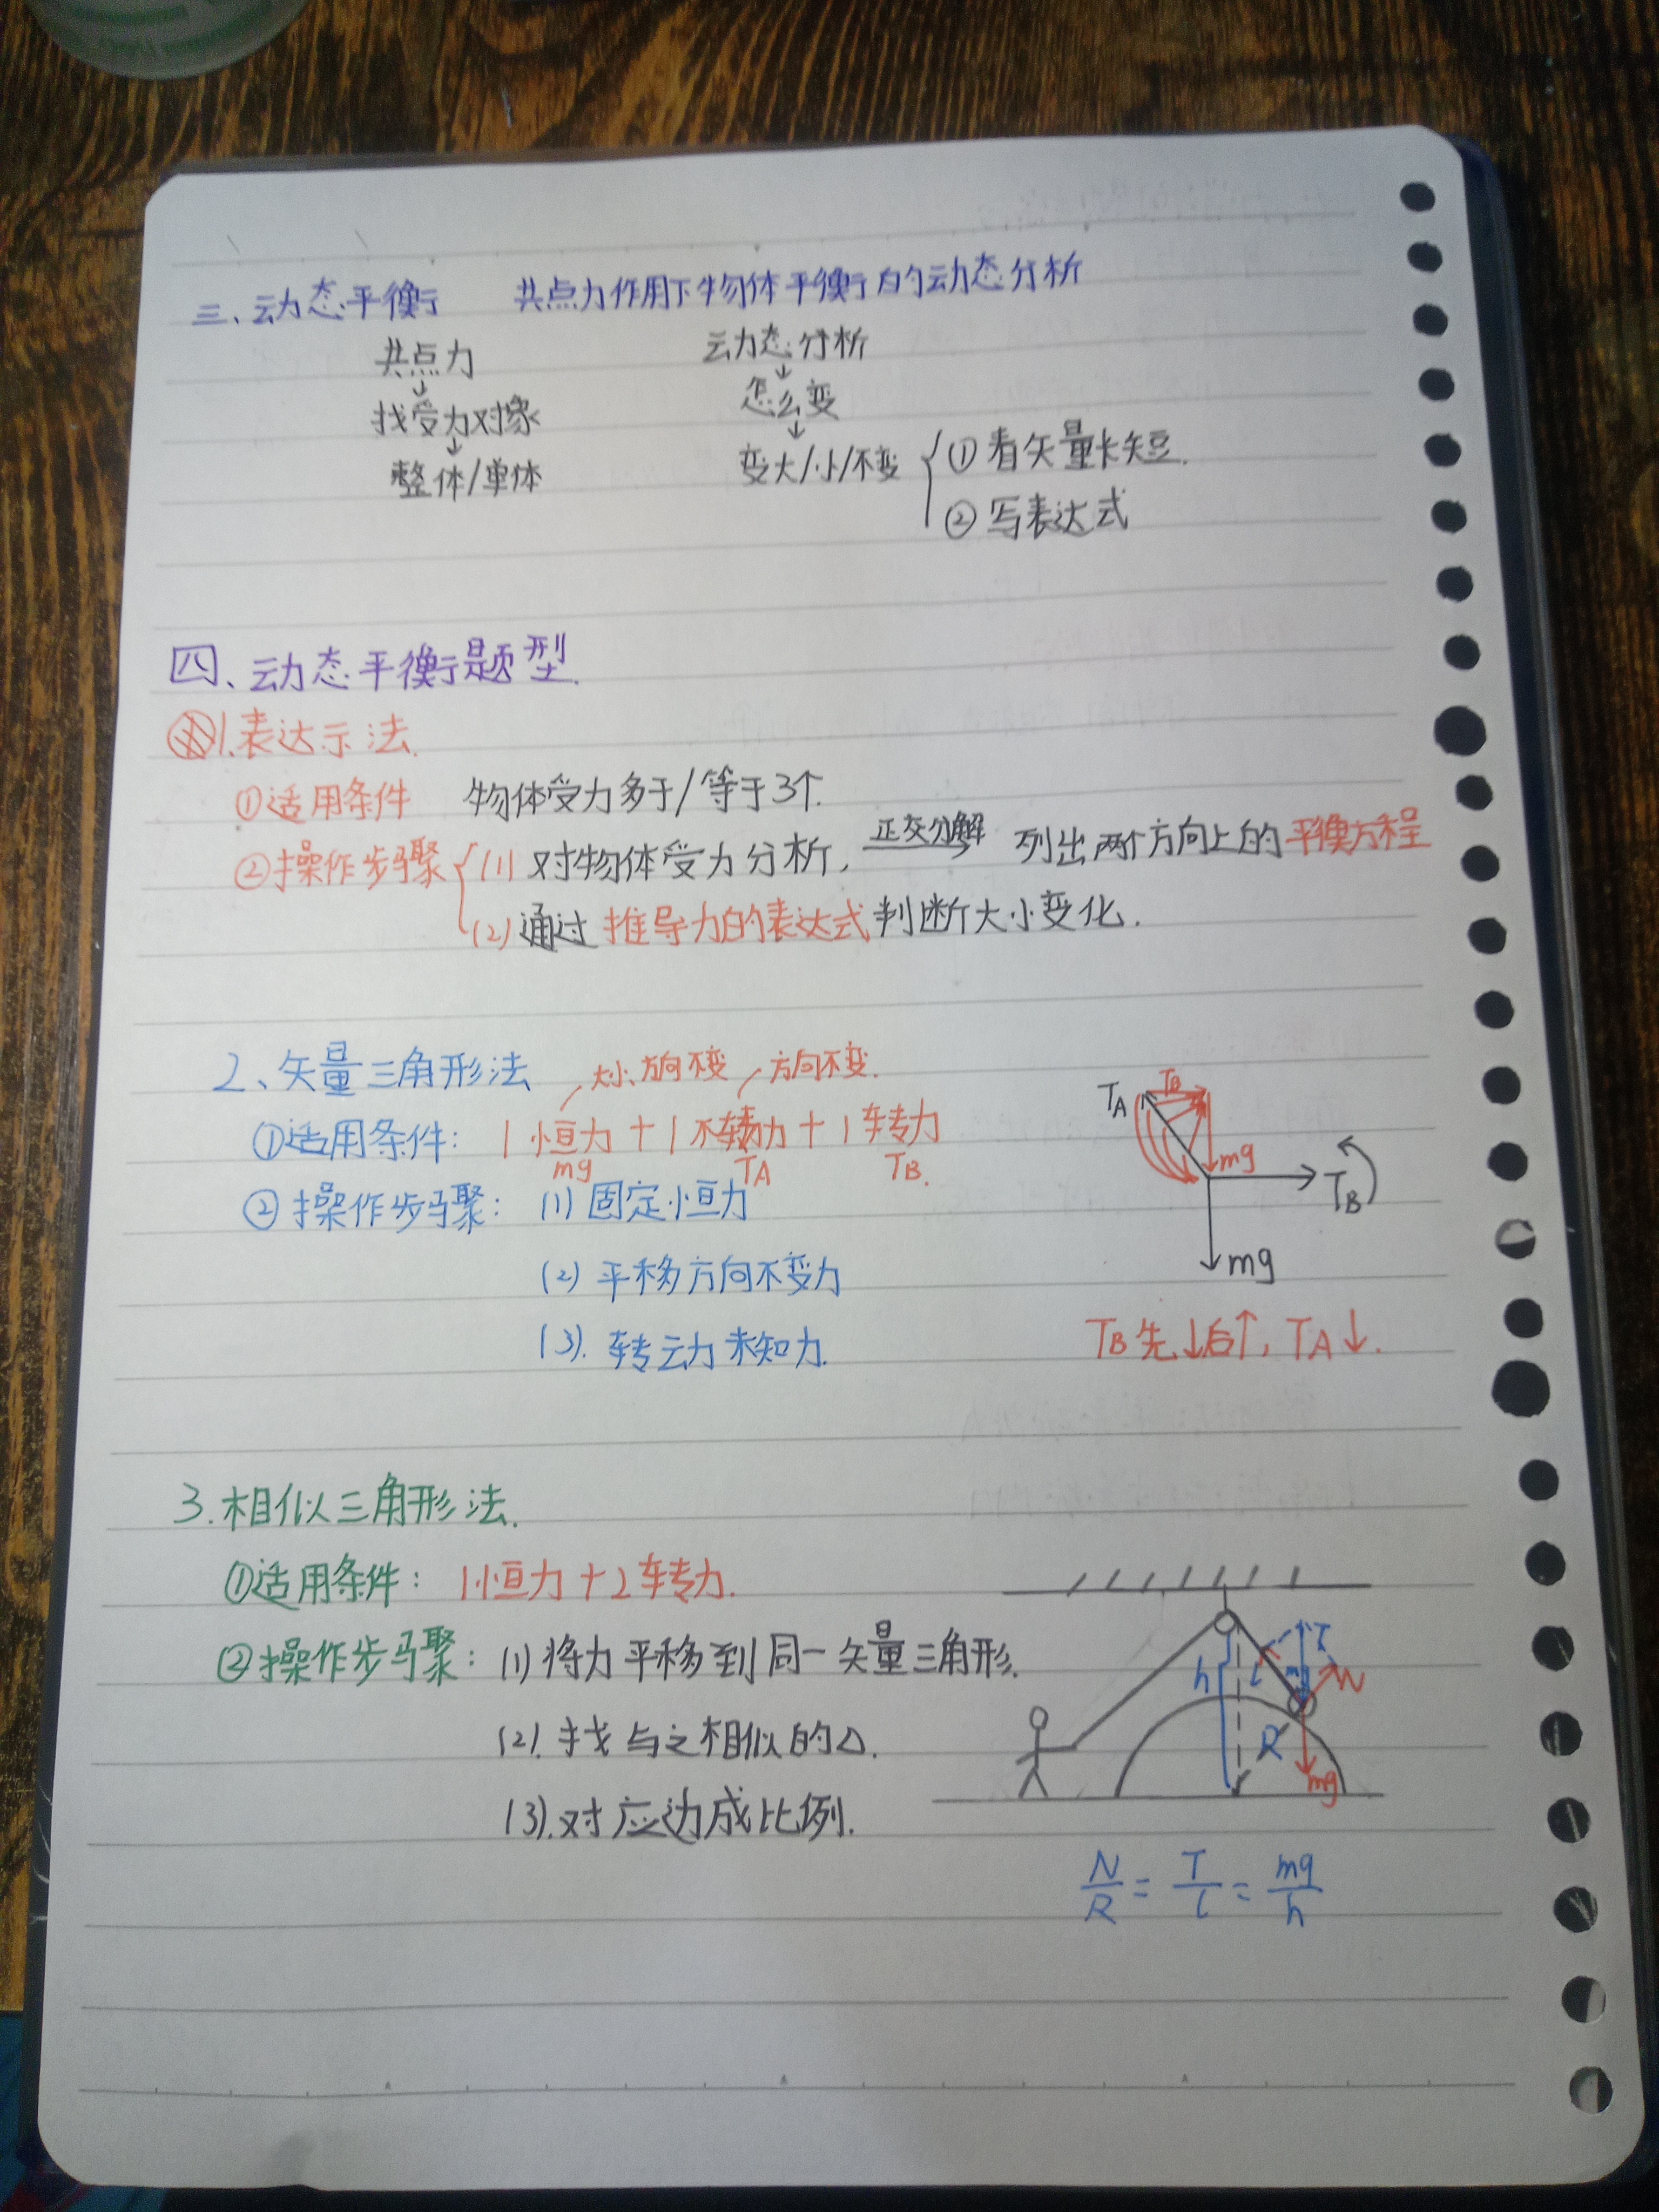 三、动态平衡 共点力作用下物体平衡的动态分析
共点力 动态分析
↓ ↓
找受力对象 怎么变
↓ ↓
整体/单体 变大/小/不变 ① 看矢量长短.
② 写表达式
四、动态平衡题型.
1.表达示法.
①适用条件 物体受力多于/等于3个.
②操作步骤 (1) 对物体受力分析, 正交分解 列出两个方向上的平衡方程
(2) 通过推导力的表达式判断大小变化.
2、矢量三角形法 大小、方向不变 方向不变.
①适用条件: 1恒力+1不转力+1转力
mg TA TB.
②操作步骤: (1) 固定恒力
(2) 平移方向不变力
(3). 转动未知力.
TA TB
mg
TB
mg
TB先↓后↑, TA↓.
3.相似三角形法.
①适用条件: 1恒力+2转力.
②操作步骤: (1) 将力平移到同一矢量三角形.
(2). 找与之相似的△.
(3). 对应边成比例.
h l T N
R
mg
N/R = T/l = mg/h